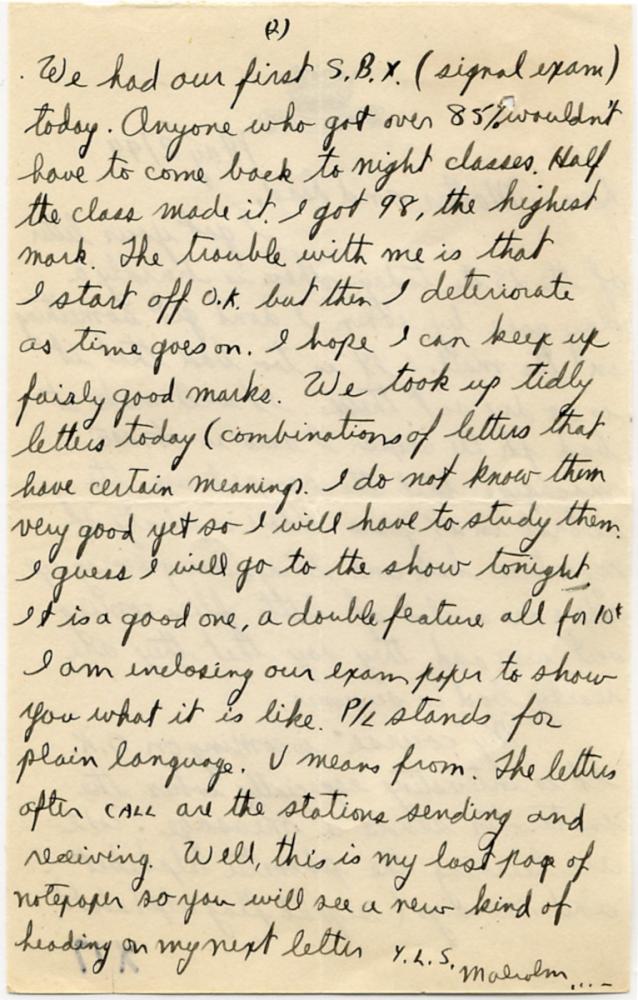 (2)
We had our first S.B.X. (signal exam)
today. Anyone who got over 85% wouldn't
have to come back to night classes. Half
the class made it. I got 98, the highest
mark. The trouble with me is that
I start off O.K. but then I deteriorate
as time goes on. I hope I can keep up
fairly good marks. We took up tidly
letters today (combinations of letters that
have certain meanings. I do not know them
very good yet so I will have to study them.
I guess I will go to the show tonight
It is a good one, a double feature all for 10¢
I am inclosing our exam paper to show
you what it is like. P/L stands for
plain language. V means from. The letters
after CALL are the stations sending and
receiving. Well, this is my last page of
notepaper so you will see a new kind of
heading on my next letter Y.L.S.
Malcolm....-